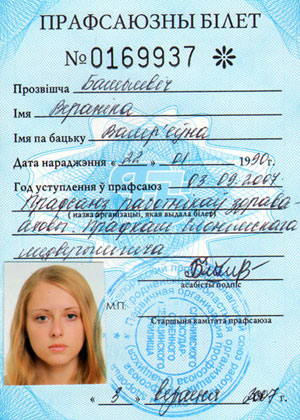 ПРАФСАЮЗНЫ БІЛЕТ
№ 0169937 ✻
Прозвішча
Імя Вераніка
Імя па бацьку Валер'еўна
Дата нараджэння « 22 » 01 1990г.
Год уступлення ў прафсаюз 03.09.2007
Прафсаюз работнікаў здрава-
(назва арганізацыі, якая выдала білет)
аховы. Прафкам
асабісты подпіс
М.П.
Старшыня камітэта прафсаюза
« 3 » верасня 2007